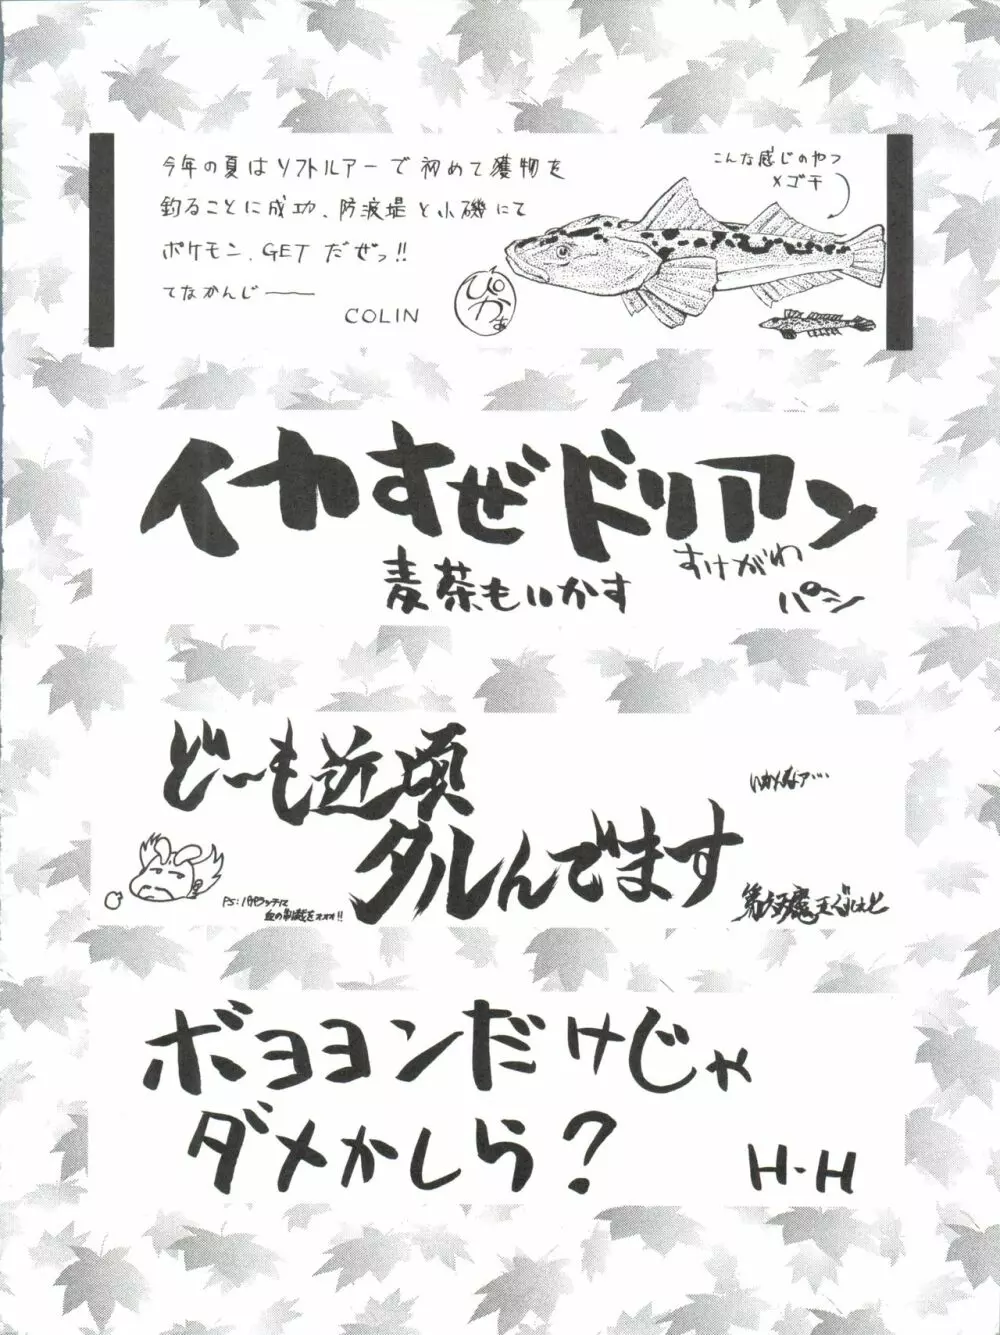 今年の夏はソフトルアーで初めて獲物を
釣ることに成功、防波堤と小磯にて
ポケモン、GETだぜっ!!
てなかんじ——
COLIN
ぴかぁ
こんな感じのやつ
メゴチ
イカすぜドリアン
麦茶もいかす
すけがわ
パン
どーも近頃
タルんでます
いかんなァ…
PS:
血の制裁をォォォ!!
第六天魔王
ボヨヨンだけじゃ
ダメかしら?
H-H